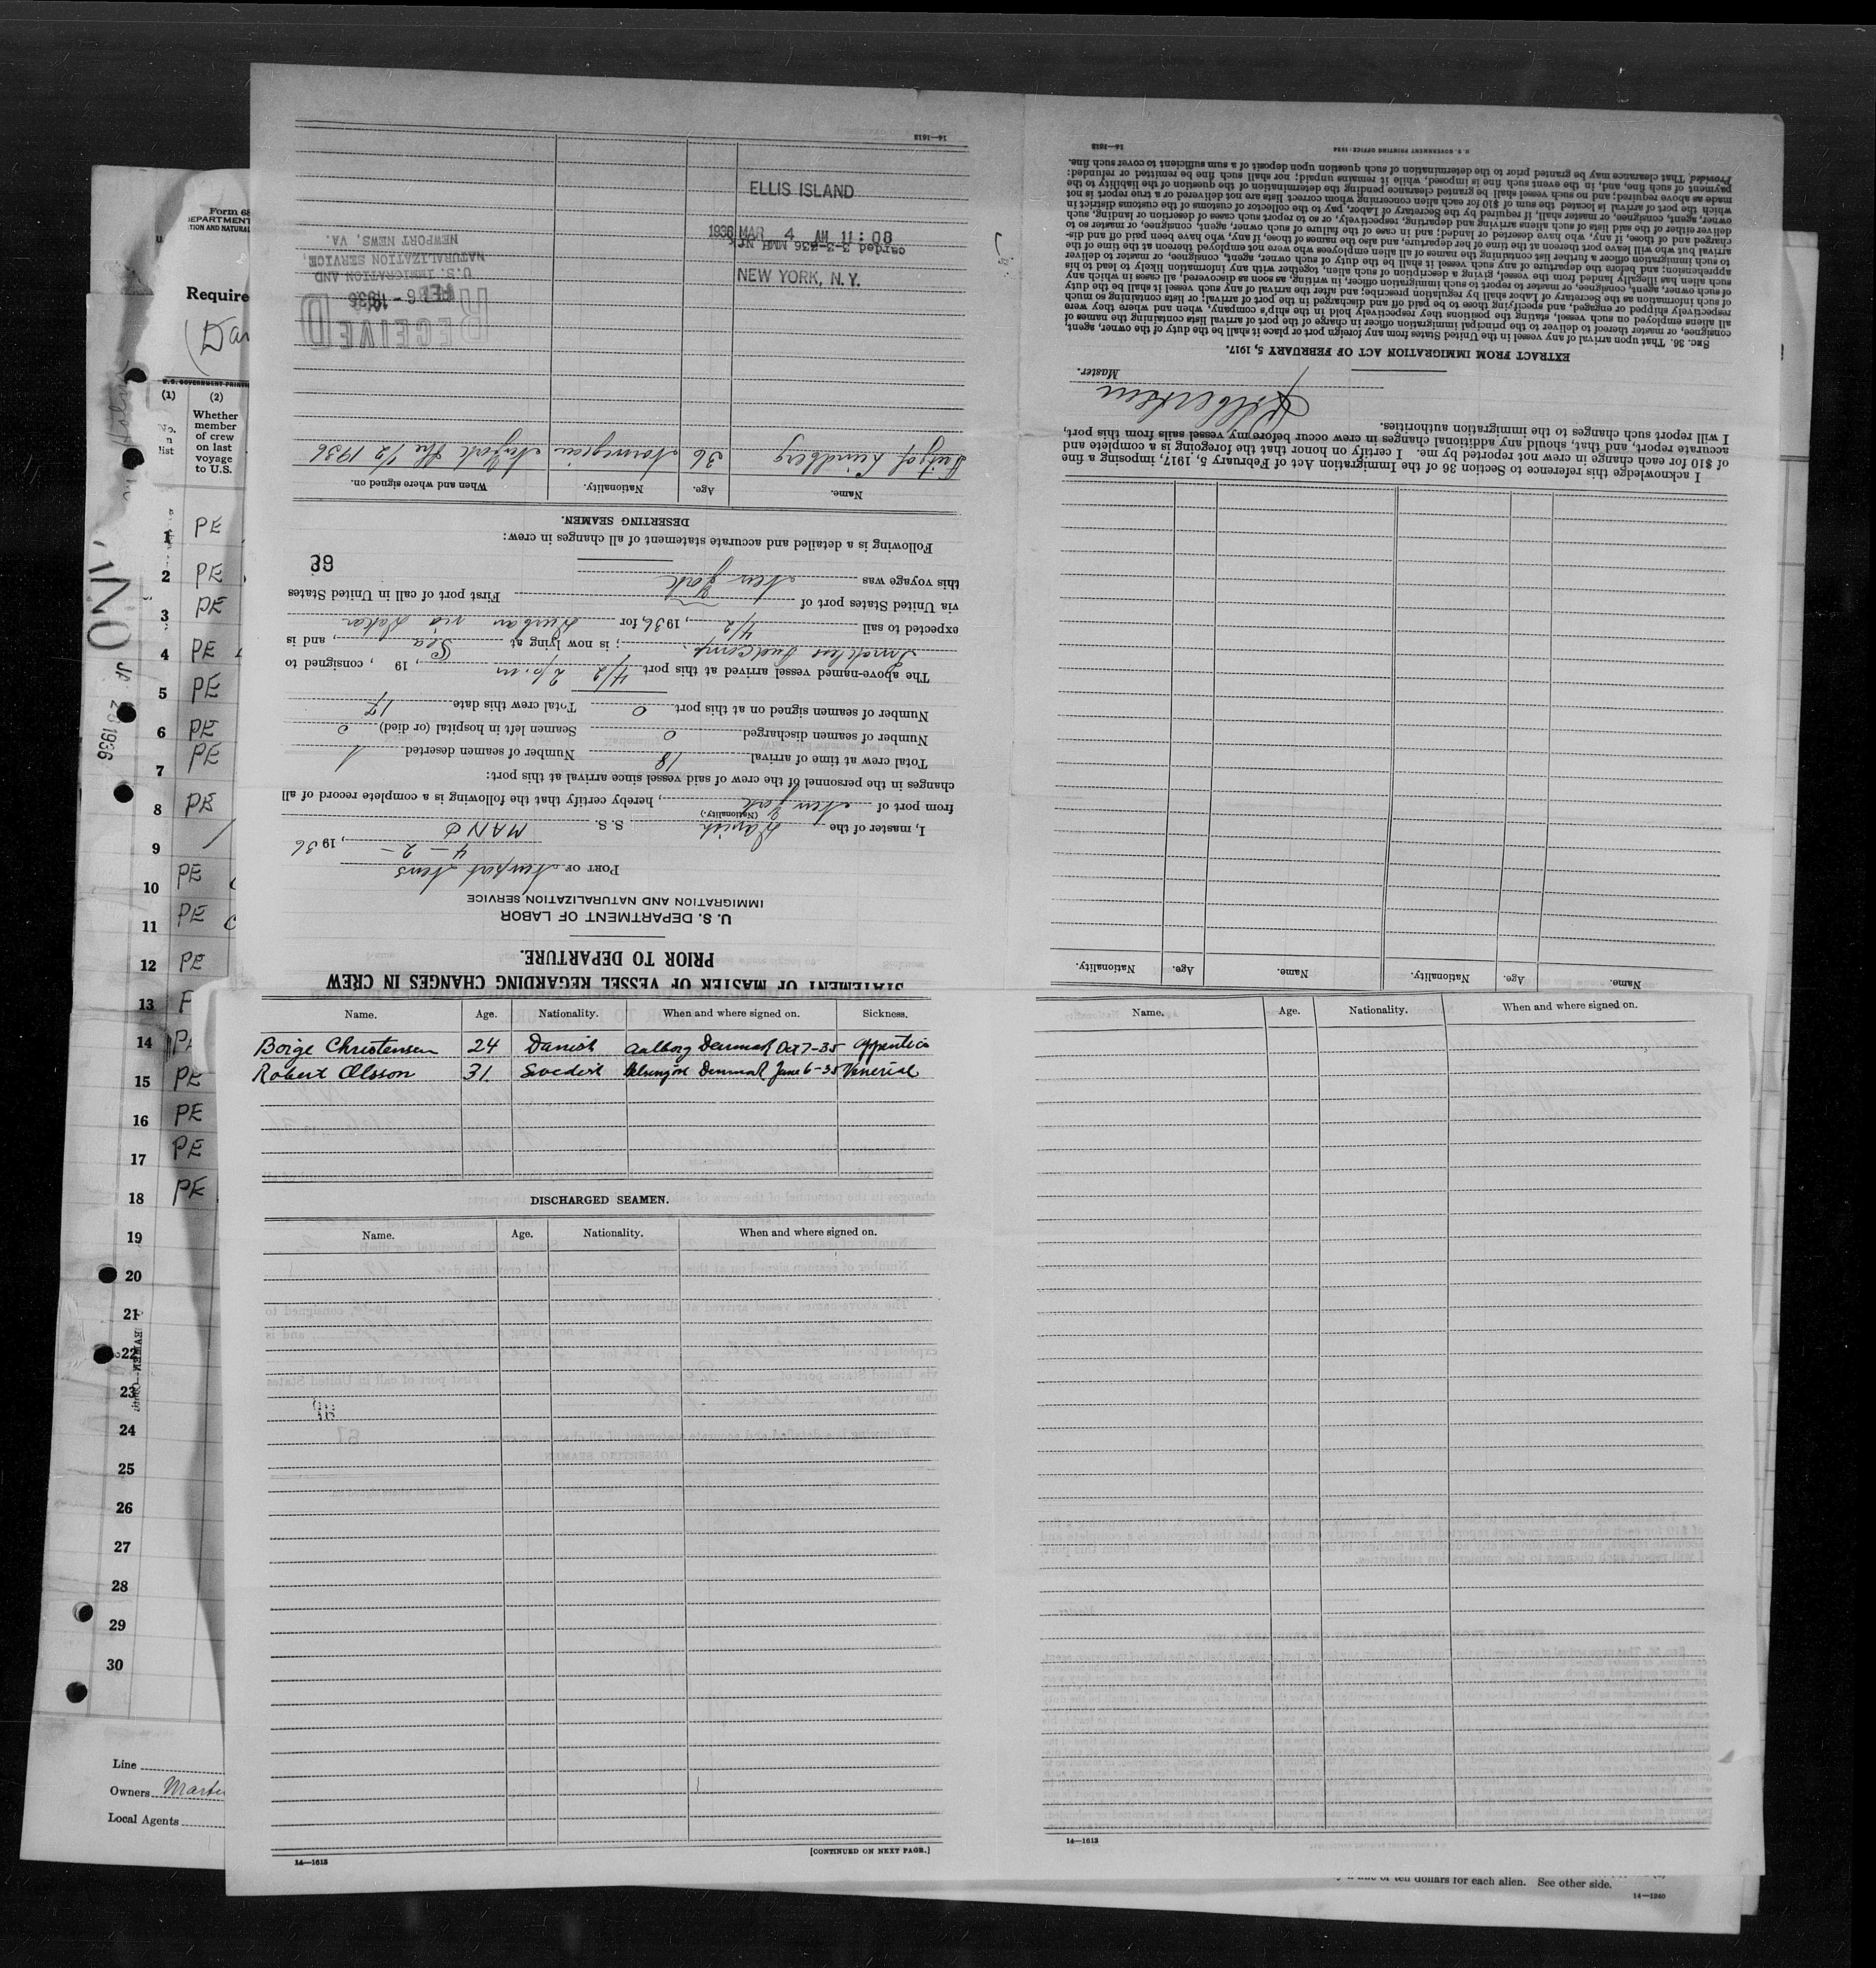 Form 68
DEPARTMENT
TION AND NATURAL
Require
(Dan
U.S. GOVERNMENT PRINTIN
(1) (2)
No.
n
list
Whether
member
of crew
on last
voyage
to U.S.
1 PE
2 PE
3 PE
4 PE
5 PE
6 PE
7 PE
8 PE
9
10 PE
11 PE
12 PE
13 P
14 PE
15 PE
16 PE
17 PE
18 PE
19
20
21
22
23
24
25
26
27
28
29
30
1936
Line
Owners Marti
Local Agents
STATEMENT OF MASTER OF VESSEL REGARDING CHANGES IN CREW
PRIOR TO DEPARTURE.
U. S. DEPARTMENT OF LABOR
IMMIGRATION AND NATURALIZATION SERVICE
PORT OF Newport News
4 – 2 – , 1936
I, master of the Danish S. S. MANØ
(Nationality.)
from port of New York, hereby certify that the following is a complete record of all
changes in the personnel of the crew of said vessel since arrival at this port:
Total crew at time of arrival 18 Number of seamen deserted 1
Number of seamen discharged 0 Seamen left in hospital (or died) 0
Number of seamen signed on at this port 0 Total crew this date 17
The above-named vessel arrived at this port 4/2 2 p.m , 19 , consigned to
; is now lying at Sea, and is
expected to sail 4/2, 1936, for Durban via Dakar
via United States port of First port of call in United States
this voyage was New York
68
Following is a detailed and accurate statement of all changes in crew:
DESERTING SEAMEN.
Name. Age. Nationality. When and where signed on.
Lundberg 36 Norwegian 1/2 1936
RECEIVED
FEB 6 - 1936
U.S. IMMIGRATION AND
NATURALIZATION SERVICE,
NEWPORT NEWS, VA.
ELLIS ISLAND
1936 MAR 4 AM 11:08
carded 3-3-936 MHH NFK
NEW YORK, N.Y.
14—1613
Name. Age. Nationality. Name. Age. Nationality.
I acknowledge this reference to Section 36 of the Immigration Act of February 5, 1917, imposing a fine
of $10 for each change in crew not reported by me. I certify on honor that the foregoing is a complete and
accurate report, and that, should any additional changes in crew occur before my vessel sails from this port,
I will report such changes to the immigration authorities.
Master.
EXTRACT FROM IMMIGRATION ACT OF FEBRUARY 5, 1917.
SEC. 36. That upon arrival of any vessel in the United States from any foreign port or place it shall be the duty of the owner, agent,
consignee, or master thereof to deliver to the principal immigration officer in charge of the port of arrival lists containing the names of
all aliens employed on such vessel, stating the positions they respectively hold in the ship's company, when and where they were
respectively shipped or engaged, and specifying those to be paid off and discharged in the port of arrival; or lists containing so much
of such information as the Secretary of Labor shall by regulation prescribe; and after the arrival of any such vessel it shall be the duty
of such owner, agent, consignee, or master to report to such immigration officer, in writing, as soon as discovered, all cases in which any
such alien has illegally landed from the vessel, giving a description of such alien, together with any information likely to lead to his
apprehension; and before the departure of any such vessel it shall be the duty of such owner, agent, consignee, or master to deliver
to such immigration officer a further list containing the names of all alien employees who were not employed thereon at the time of the
arrival but who will leave port thereon at the time of her departure, and also the names of those, if any, who have been paid off and dis-
charged and of those, if any, who have deserted or landed; and in case of the failure of such owner, agent, consignee, or master so to
deliver either of the said lists of such aliens arriving and departing, respectively, or so to report such cases of desertion or landing, such
owner, agent, consignee, or master shall, if required by the Secretary of Labor, pay to the collector of customs of the customs district in
which the port of arrival is located the sum of $10 for each alien concerning whom correct lists are not delivered or a true report is not
made as above required; and no such vessel shall be granted clearance pending the determination of the question of the liability to the
payment of such fine, and, in the event such fine is imposed, while it remains unpaid; nor shall such fine be remitted or refunded:
Provided, That clearance may be granted prior to the determination of such question upon deposit of a sum sufficient to cover such fine.
U. S. GOVERNMENT PRINTING OFFICE: 1934 14—1613
Name. Age. Nationality. When and where signed on. Sickness.
Borge Christensen 24 Danish Aalborg Denmark Oct 7-35 Appentis
Robert Olsson 31. Swedish Helsingör Denmark June 6-35 Venerial
DISCHARGED SEAMEN.
Name. Age. Nationality. When and where signed on.
14—1613 [CONTINUED ON NEXT PAGE.]
Name. Age. Nationality. When and where signed on.
14—1613
of ten dollars for each alien. See other side.
14—1240